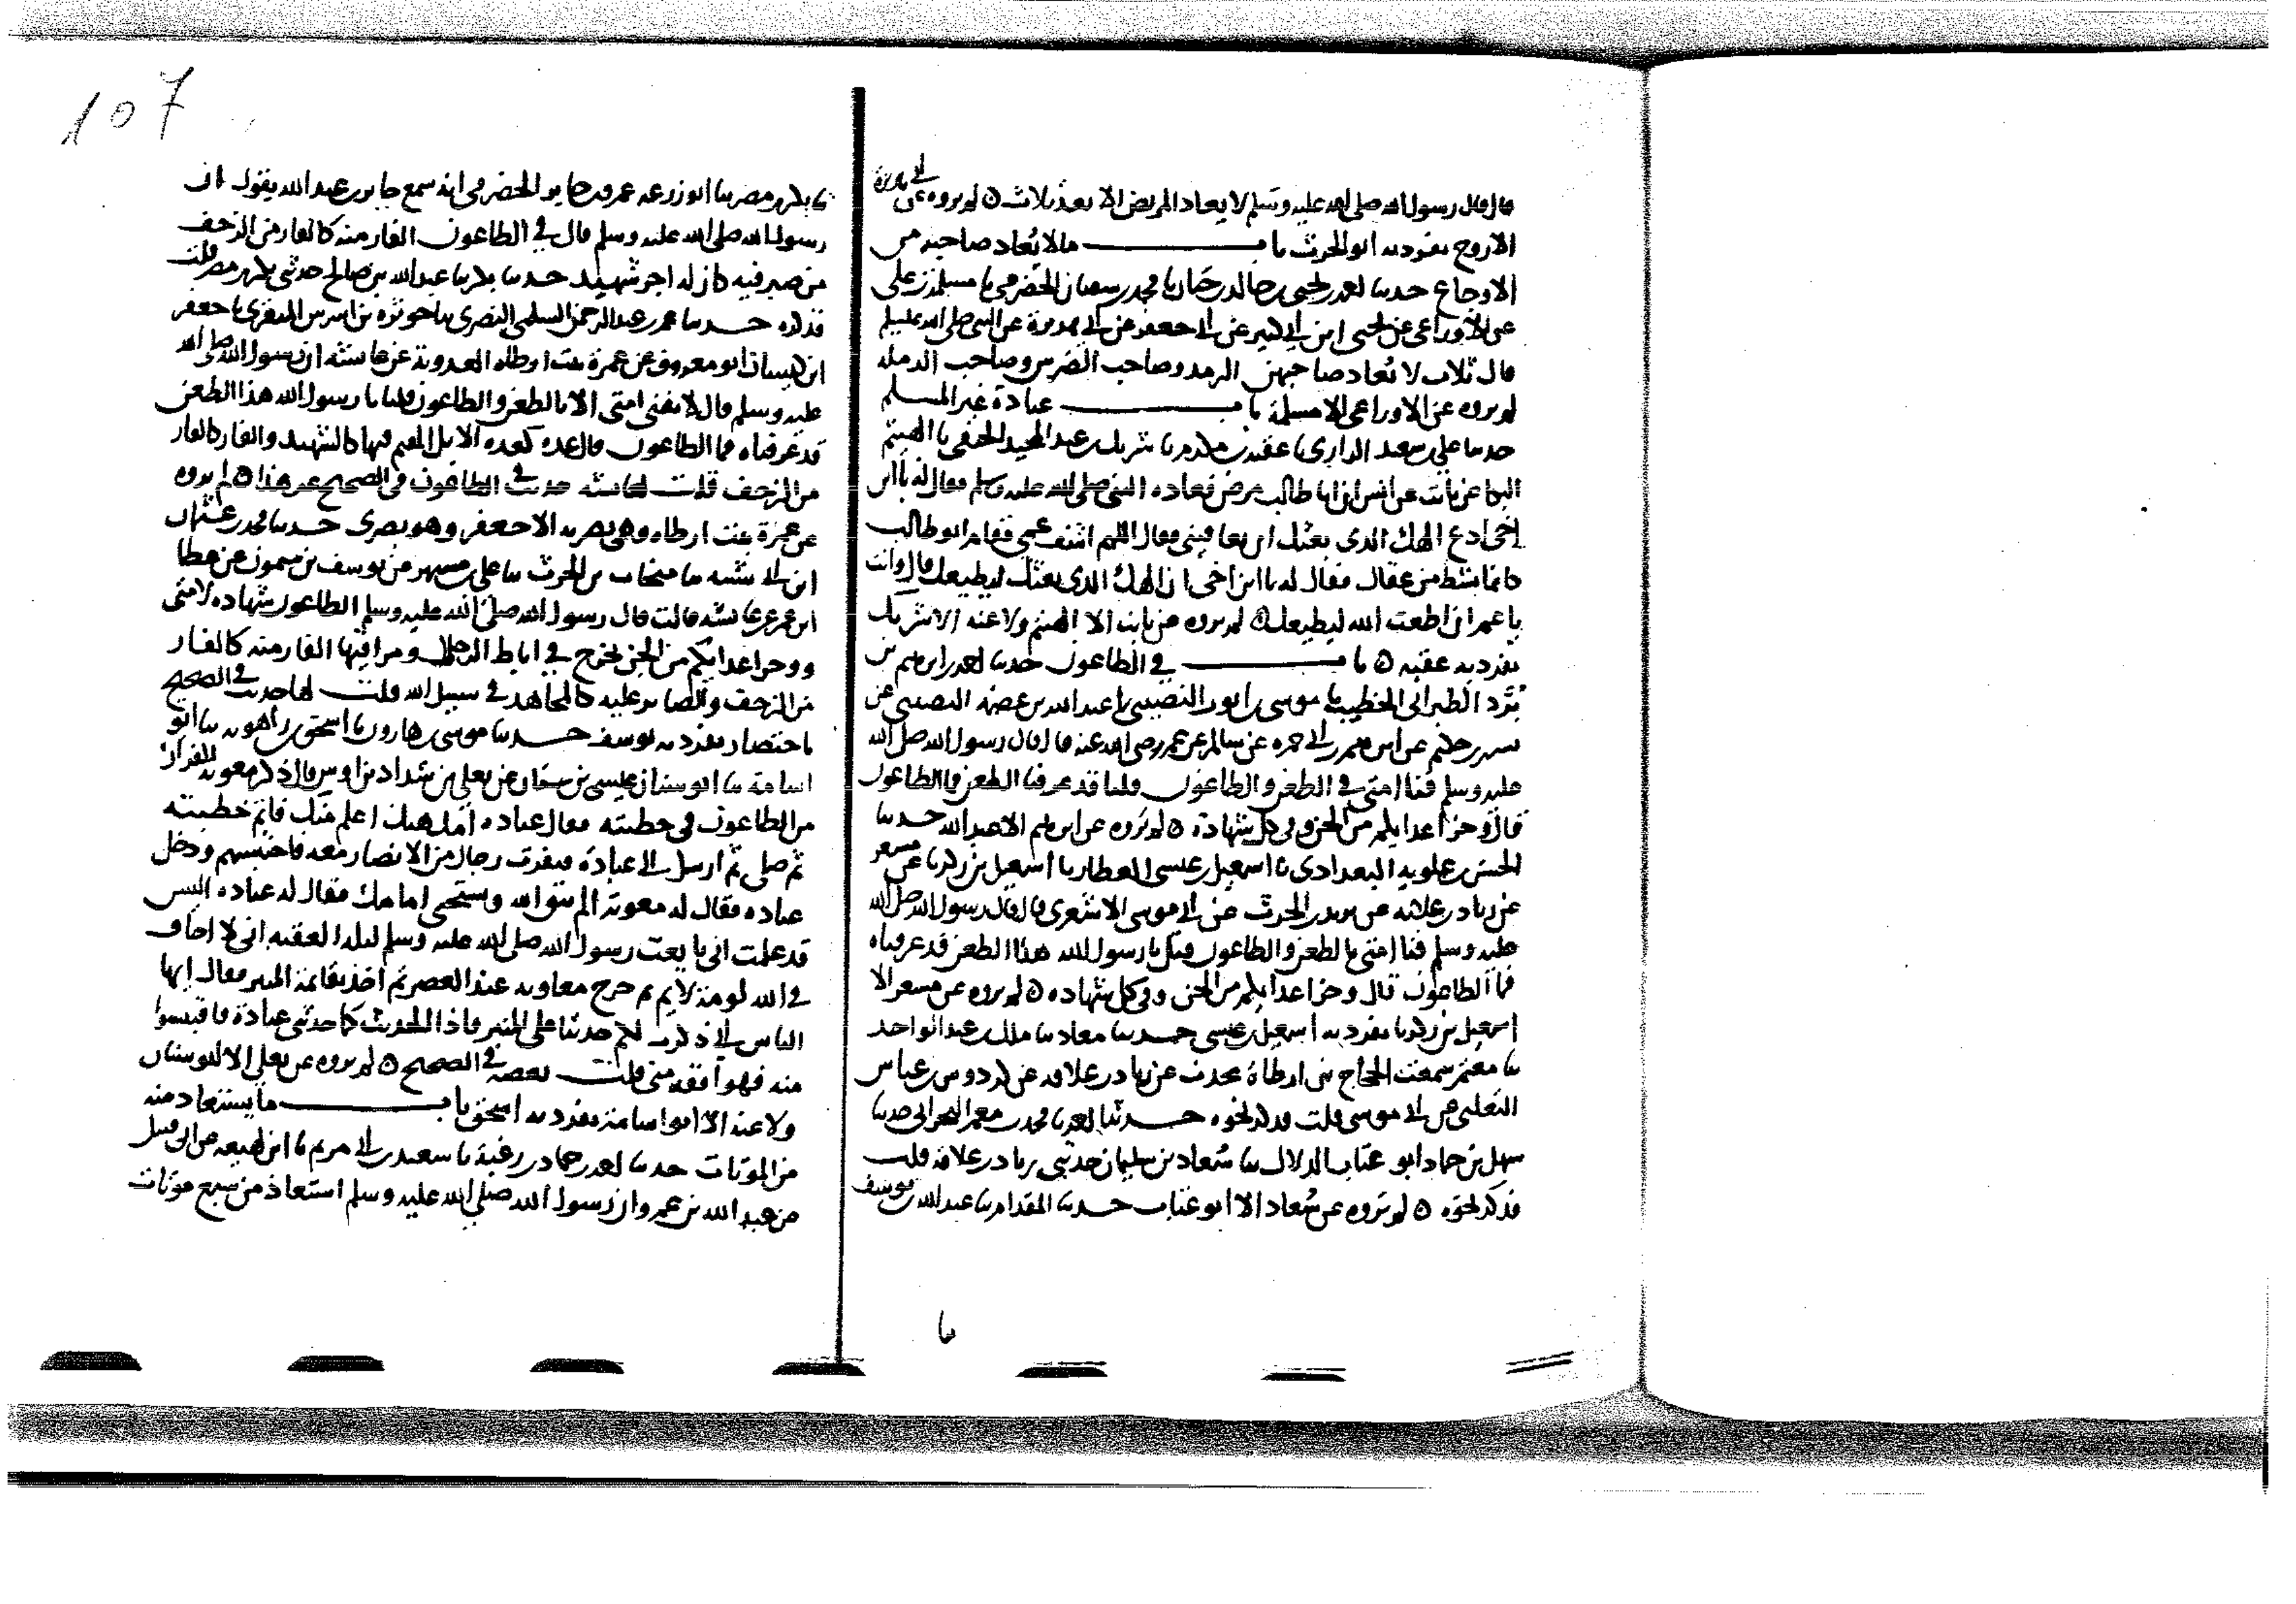 قال قال رسول الله صلى الله عليه وسلم لا يعاد المريض الا بعد ثلاث ٥ لم يروه عن
الا روح تفرد به ابو الحرث باب ما لا يعاد صاحبه من
الاوجاع حدثنا احمد بن يحيى بن خالد بن حيان نا محمد بن سفيان الحضرمي نا مسلمة بن علي
عن الاوراعي عن يحيى ابن ابي كثير عن ابي جعفر عن ابي هريرة عن النبي صلى الله عليه وسلم
قال ثلاث لا يعاد صاحبهن الرمد وصاحب الضرس وصاحب الدملة
لم يروه عن الاوراعي الا مسلمة باب عيادة غير المسلم
حدثنا علي بن سعيد الرازي نا عقبة بن مكرم نا شريك بن عبد المجيد الحنفي نا الهيثم
البكا عن ثابت عن انس ان ابا طالب مرض فعاده النبي صلى الله عليه وسلم فقال له يا ابن
اخي ادع الهك الذي بعثك ان يعافيني فقال اللهم اشف عمي فقام ابو طالب
كانما نشط من عقال فقال له يا ابن اخي ان الهك الذي بعثك ليطيعك قال وانت
يا عم ان اطعت الله ليطيعك ٥ لم يروه عن ثابت الا الهيثم ولا عنه الا شريك
تفرد به عقبه ٥ باب في الطاعون حدثنا احمد بن ابرهيم بن
عبد الله بن عصمة النصيبي عن
عن سالم عن عمر رضي الله عنه قال قال رسول الله صلى الله
عليه وسلم فنا امتي في الطعن والطاعون قلنا قد عرفنا الطعن فما الطاعون
قال وخز اعدايكم من الجن وفي كل شهادة ٥ لم يروه عن ابرهيم الا عبد الله حدثنا
الحسن بن علويه البغدادي نا اسمعيل بن عيسى العطار نا اسمعيل بن زكريا عن مسعر
عن زياد بن علاقه عن يزيد بن الحرث عن ابي موسى الاشعري قال قال رسول الله صلى الله
عليه وسلم فنا امتي بالطعن والطاعون فقيل يا رسول الله هذا الطعن قد عرفناه
فما الطاعون قال وخز اعدايكم من الجن وفي كل شهاده ٥ لم يروه عن مسعر الا
اسمعيل بن زكريا تفرد به اسمعيل بن عيسى حدثنا معاذ نا ملك بن عبد الواحد
نا معتمر سمعت الحجاج بن ارطاة يحدث عن زياد بن علاقه عن كردوس بن عباس
الثعلبي عن ابي موسى قلت فذكر نحوه حدثنا احمد نا محمد بن معمر البحراني حدثنا
سهل بن حماد ابو عتاب الدلال نا شعاد بن سليمان حدثني زياد بن علاقه قلت
فذكر نحوه ٥ لم يروه عن شعاد الا ابو عتاب حدثنا المقدام نا عبد الله بن يوسف
نا بكر بن مضر نا ابو زرعه عمرو بن جابر الحضرمي انه سمع جابر بن عبد الله يقول ان
رسول الله صلى الله عليه وسلم قال في الطاعون الفار منه كالفار من الزحف
من صبر فيه كان له اجر شهيد حدثنا بكر نا عبد الله بن صالح حدثني بكر بن مضر قلت
فذكره حدثنا عبد الرحمن السلمي البصري نا حوثرة بن اشرس المنقري نا جعفر
ابن كيسان ابو معروف عن عمرة بنت ارطاه العدوية عن عائشه ان رسول الله صلى الله
عليه وسلم قال لا تفنى امتي الا بالطعن والطاعون قلنا يا رسول الله هذا الطعن
قد عرفناه فما الطاعون قال غده كغده الابل المقيم فيها كالشهيد والفار كالفار
من الزحف قلت لعائشه حديث في الطاعون في الصحيح غير هذا ٥ لم يروه
عن عمرة بنت ارطاه وهي بصريه الا جعفر وهو بصري حدثنا محمد بن عثمان
ابن ابي شيبه نا منجاب بن الحرث نا علي بن مسهر عن يوسف بن ميمون عن عطا
ابن عمر عن عائشه قالت قال رسول الله صلى الله عليه وسلم الطاعون شهاده لامتي
ووخز اعدايكم من الجن يخرج في اباط الرجال ومراقها الفار منه كالفار
من الزحف والصابر عليه كالمجاهد في سبيل الله قلت لها حديث في الصحيح
باختصار تفرد به يوسف حدثنا موسى بن هارون نا اسحق بن راهويه نا ابو
اسامة نا ابو سنان عيسى بن سنان عن يعلى بن شداد بن اوس قال ذكر معوية الفرار
من الطاعون في خطبته فقال عباده امك هند اعلم منك فاتم خطبته
ثم صلى ثم ارسل الى عبادة فنفرت رجال من الانصار معه فاحتبسهم ودخل
عباده فقال له معوية الم تتق الله وتستحي امامك فقال له عباده اليس
قد علمت اني بايعت رسول الله صلى الله عليه وسلم ليلة العقبه اني لا اخاف
في الله لومة لايم ثم خرج معاويه عند العصر ثم اخذ بقائمة المنبر فقال ايها
الناس اني ذكرت لكم حديثا على المنبر فاذا الحديث كما حدثني عبادة فاقتبسوا
منه فهو افقه مني قلت بعضه في الصحيح ٥ لم يروه عن يعلى الا ابو سنان
ولا عنه الا ابو اسامة تفرد به اسحق باب ما يستعاذ منه
من الموتات حدثنا احمد بن حماد بن زغبة نا سعيد بن ابي مريم نا ابن لهيعه عن ابي قبيل
عن عبد الله بن عمرو ان رسول الله صلى الله عليه وسلم استعاذ من سبع موتات
107